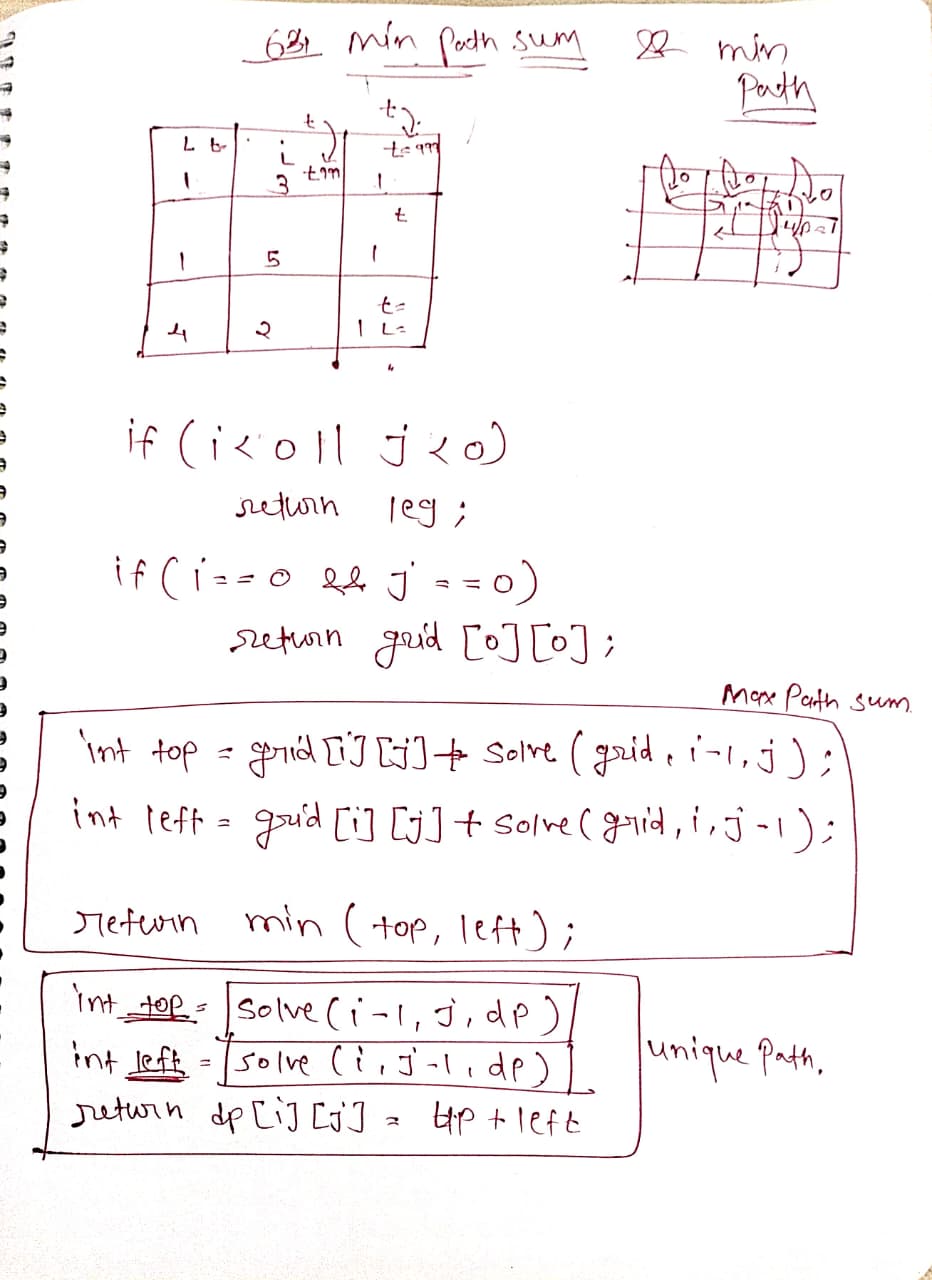 min path sum && min
Path
L t t t
i t=999
1 3 1
t
1 5 1
t=
4 2 1 L=
0 0 0
if (i<0 || j<0)
return 1e9;
if (i==0 && j==0)
return grid [0][0];
Max Path sum.
int top = grid [i][j] + solve (grid, i-1, j);
int left = grid [i][j] + solve (grid, i, j-1);
return min (top, left);
int top = solve (i-1, j, dp)
int left = solve (i, j-1, dp)
unique Path.
return dp [i][j] = up + left